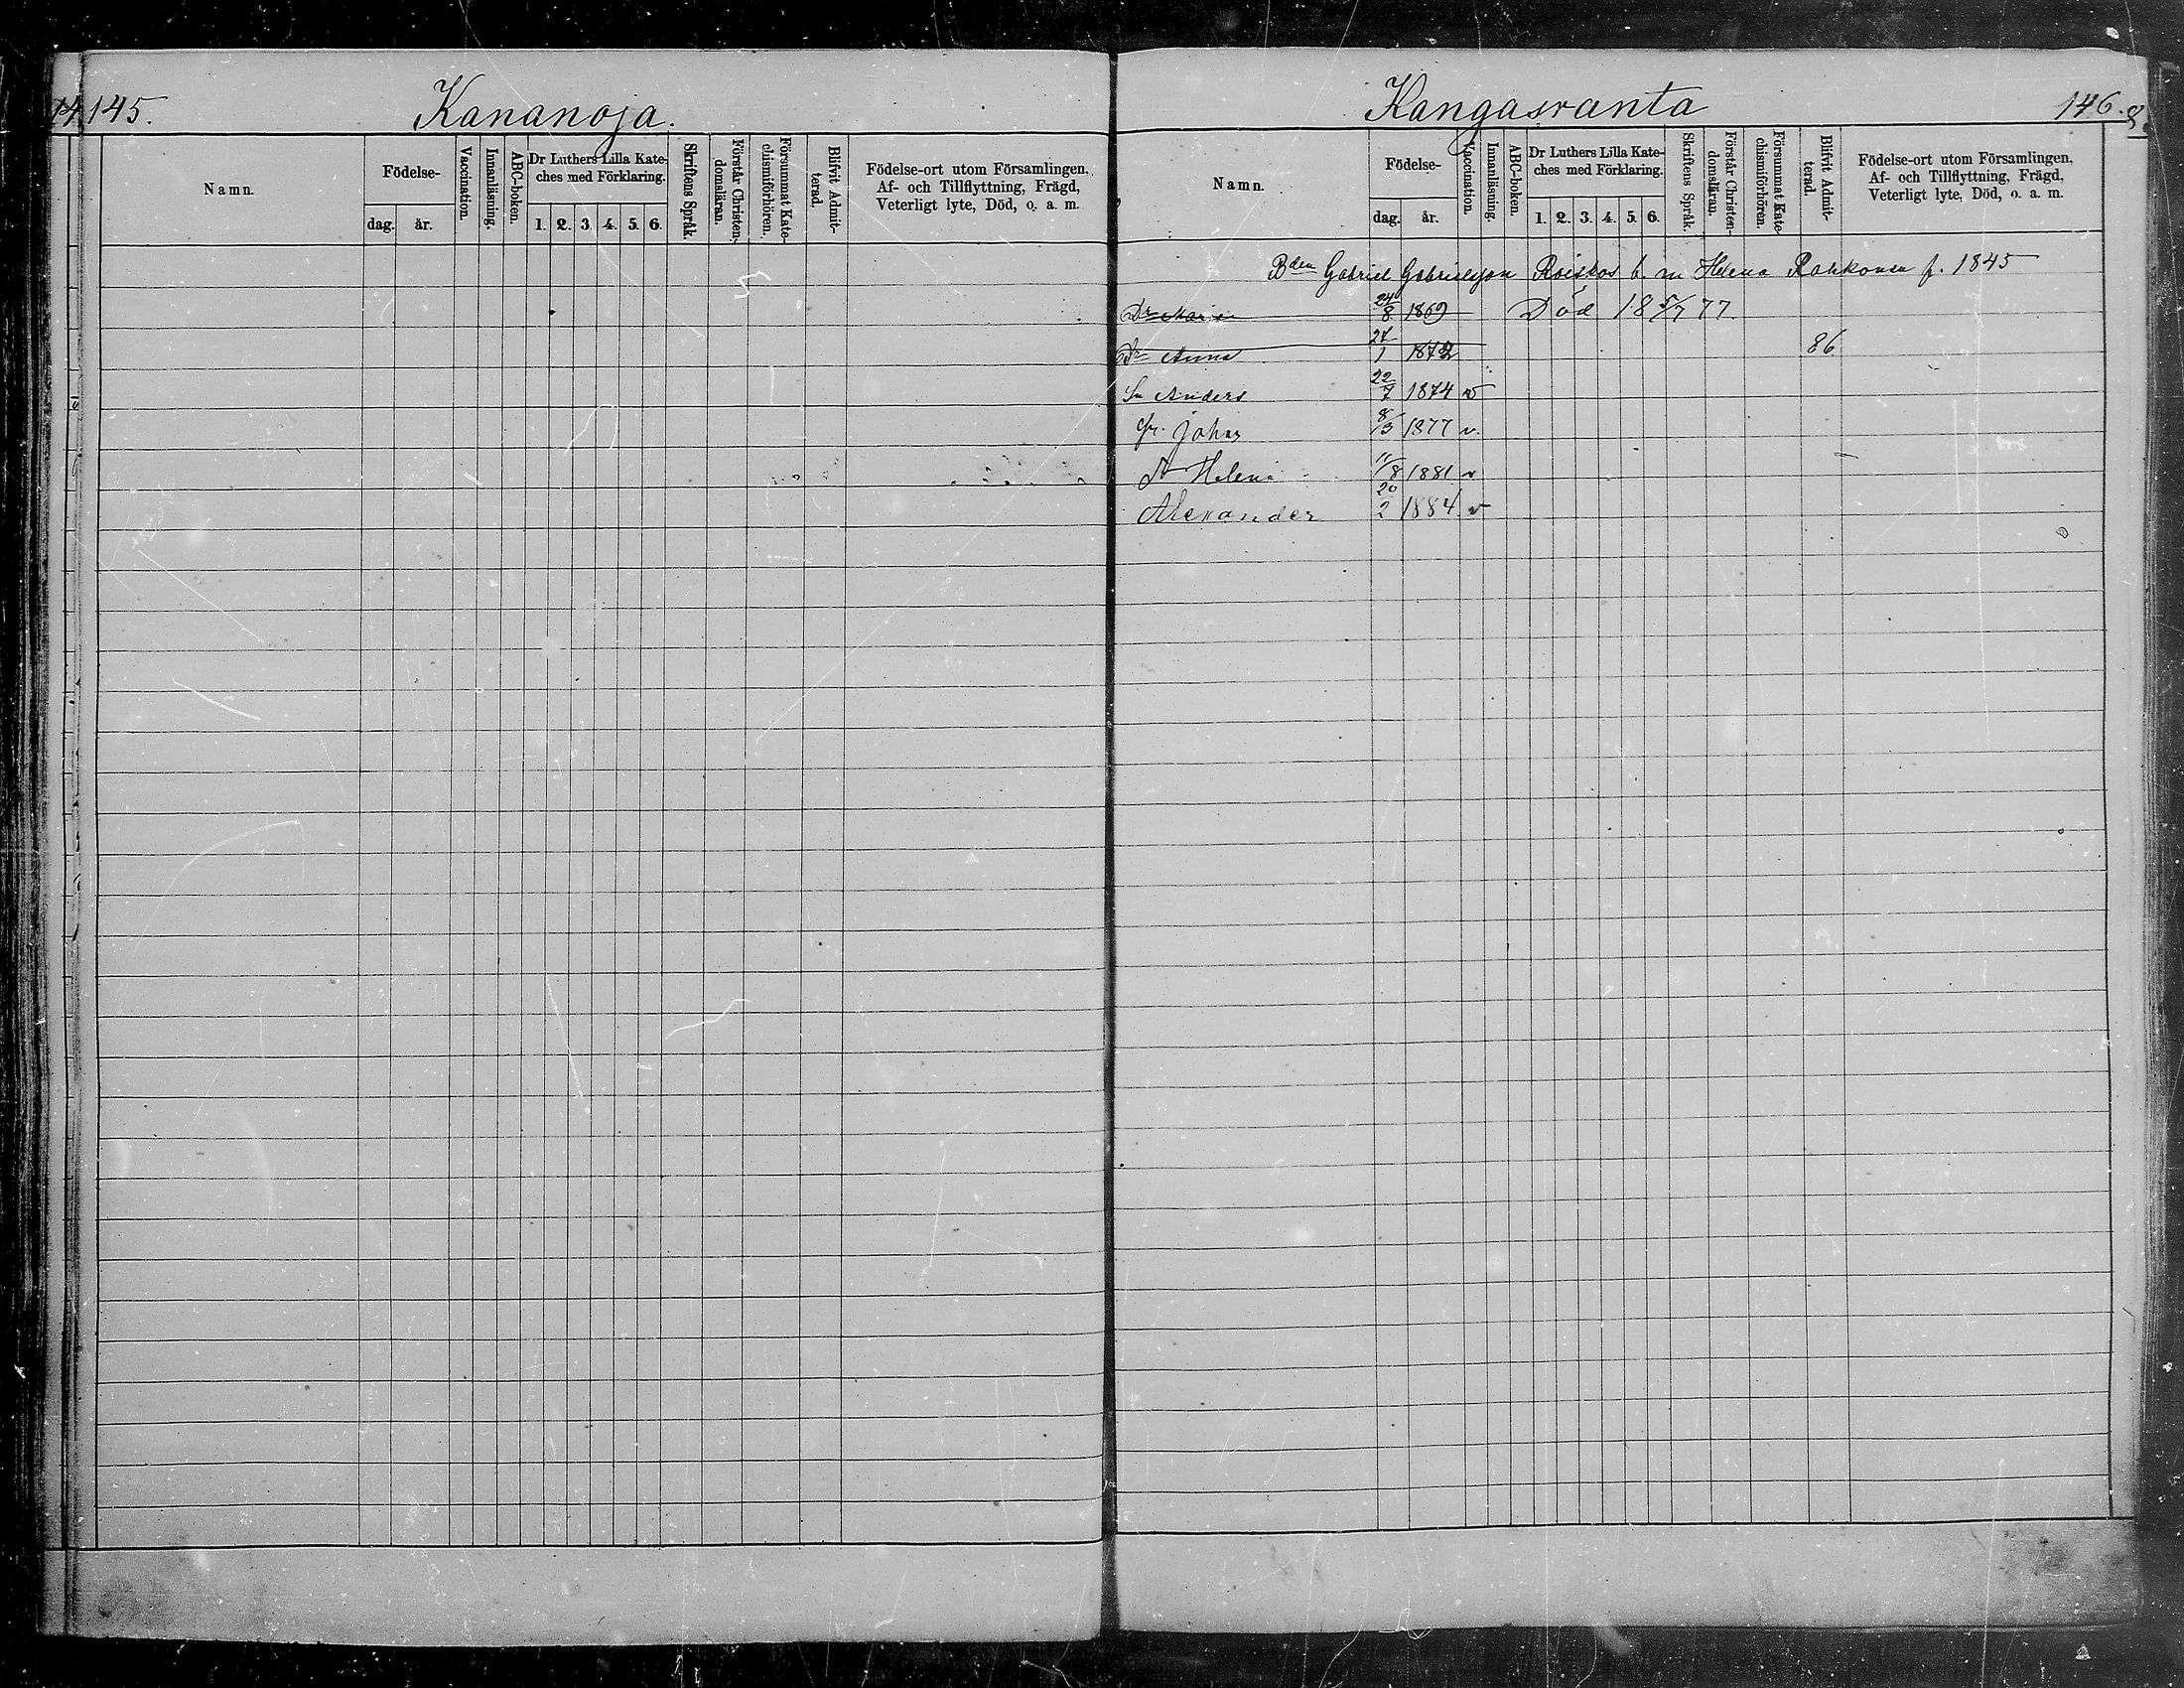 145.
Kananoja.
Namn.
Födelse-
dag. år.
Vaccination.
Innanläsning.
ABC-boken.
Dr Luthers Lilla Kate-
ches med Förklaring.
1. 2. 3. 4. 5. 6.
Skriftens Språk.
Förstår Christen-
domsläran.
Försummat Kate-
chismiförhören.
Blifvit Admit-
terad.
Födelse-ort utom Församlingen,
Af- och Tillflyttning, Frägd,
Veterligt lyte, Död, o. a. m.
Kangasranta
146.
Namn.
Födelse-
dag. år.
Vaccination.
Innanläsning.
ABC-boken.
Dr Luthers Lilla Kate-
ches med Förklaring.
1. 2. 3. 4. 5. 6.
Skriftens Språk.
Förstår Christen-
domsläran.
Försummat Kate-
chismiförhören.
Blifvit Admit-
terad.
Födelse-ort utom Församlingen,
Af- och Tillflyttning, Frägd,
Veterligt lyte, Död, o. a. m.
Bden Gabriel Gabrielsson Roiskos b. m Helena Rahkonen f. 1845
Dr Maria 24/8 1869 Död 18 5/7 77.
Dr Anna 27/1 1872 86
Sn Anders 22/7 1874 v
Johan 8/3 1877 v.
Dr Helena 11/8 1881 v
Alexander 20/2 1884 v